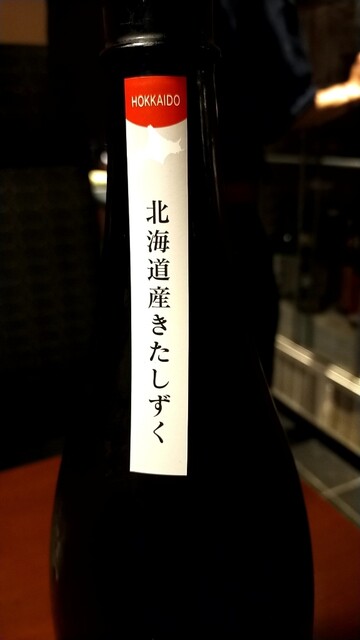 HOKKAIDO
北海道産きたしずく